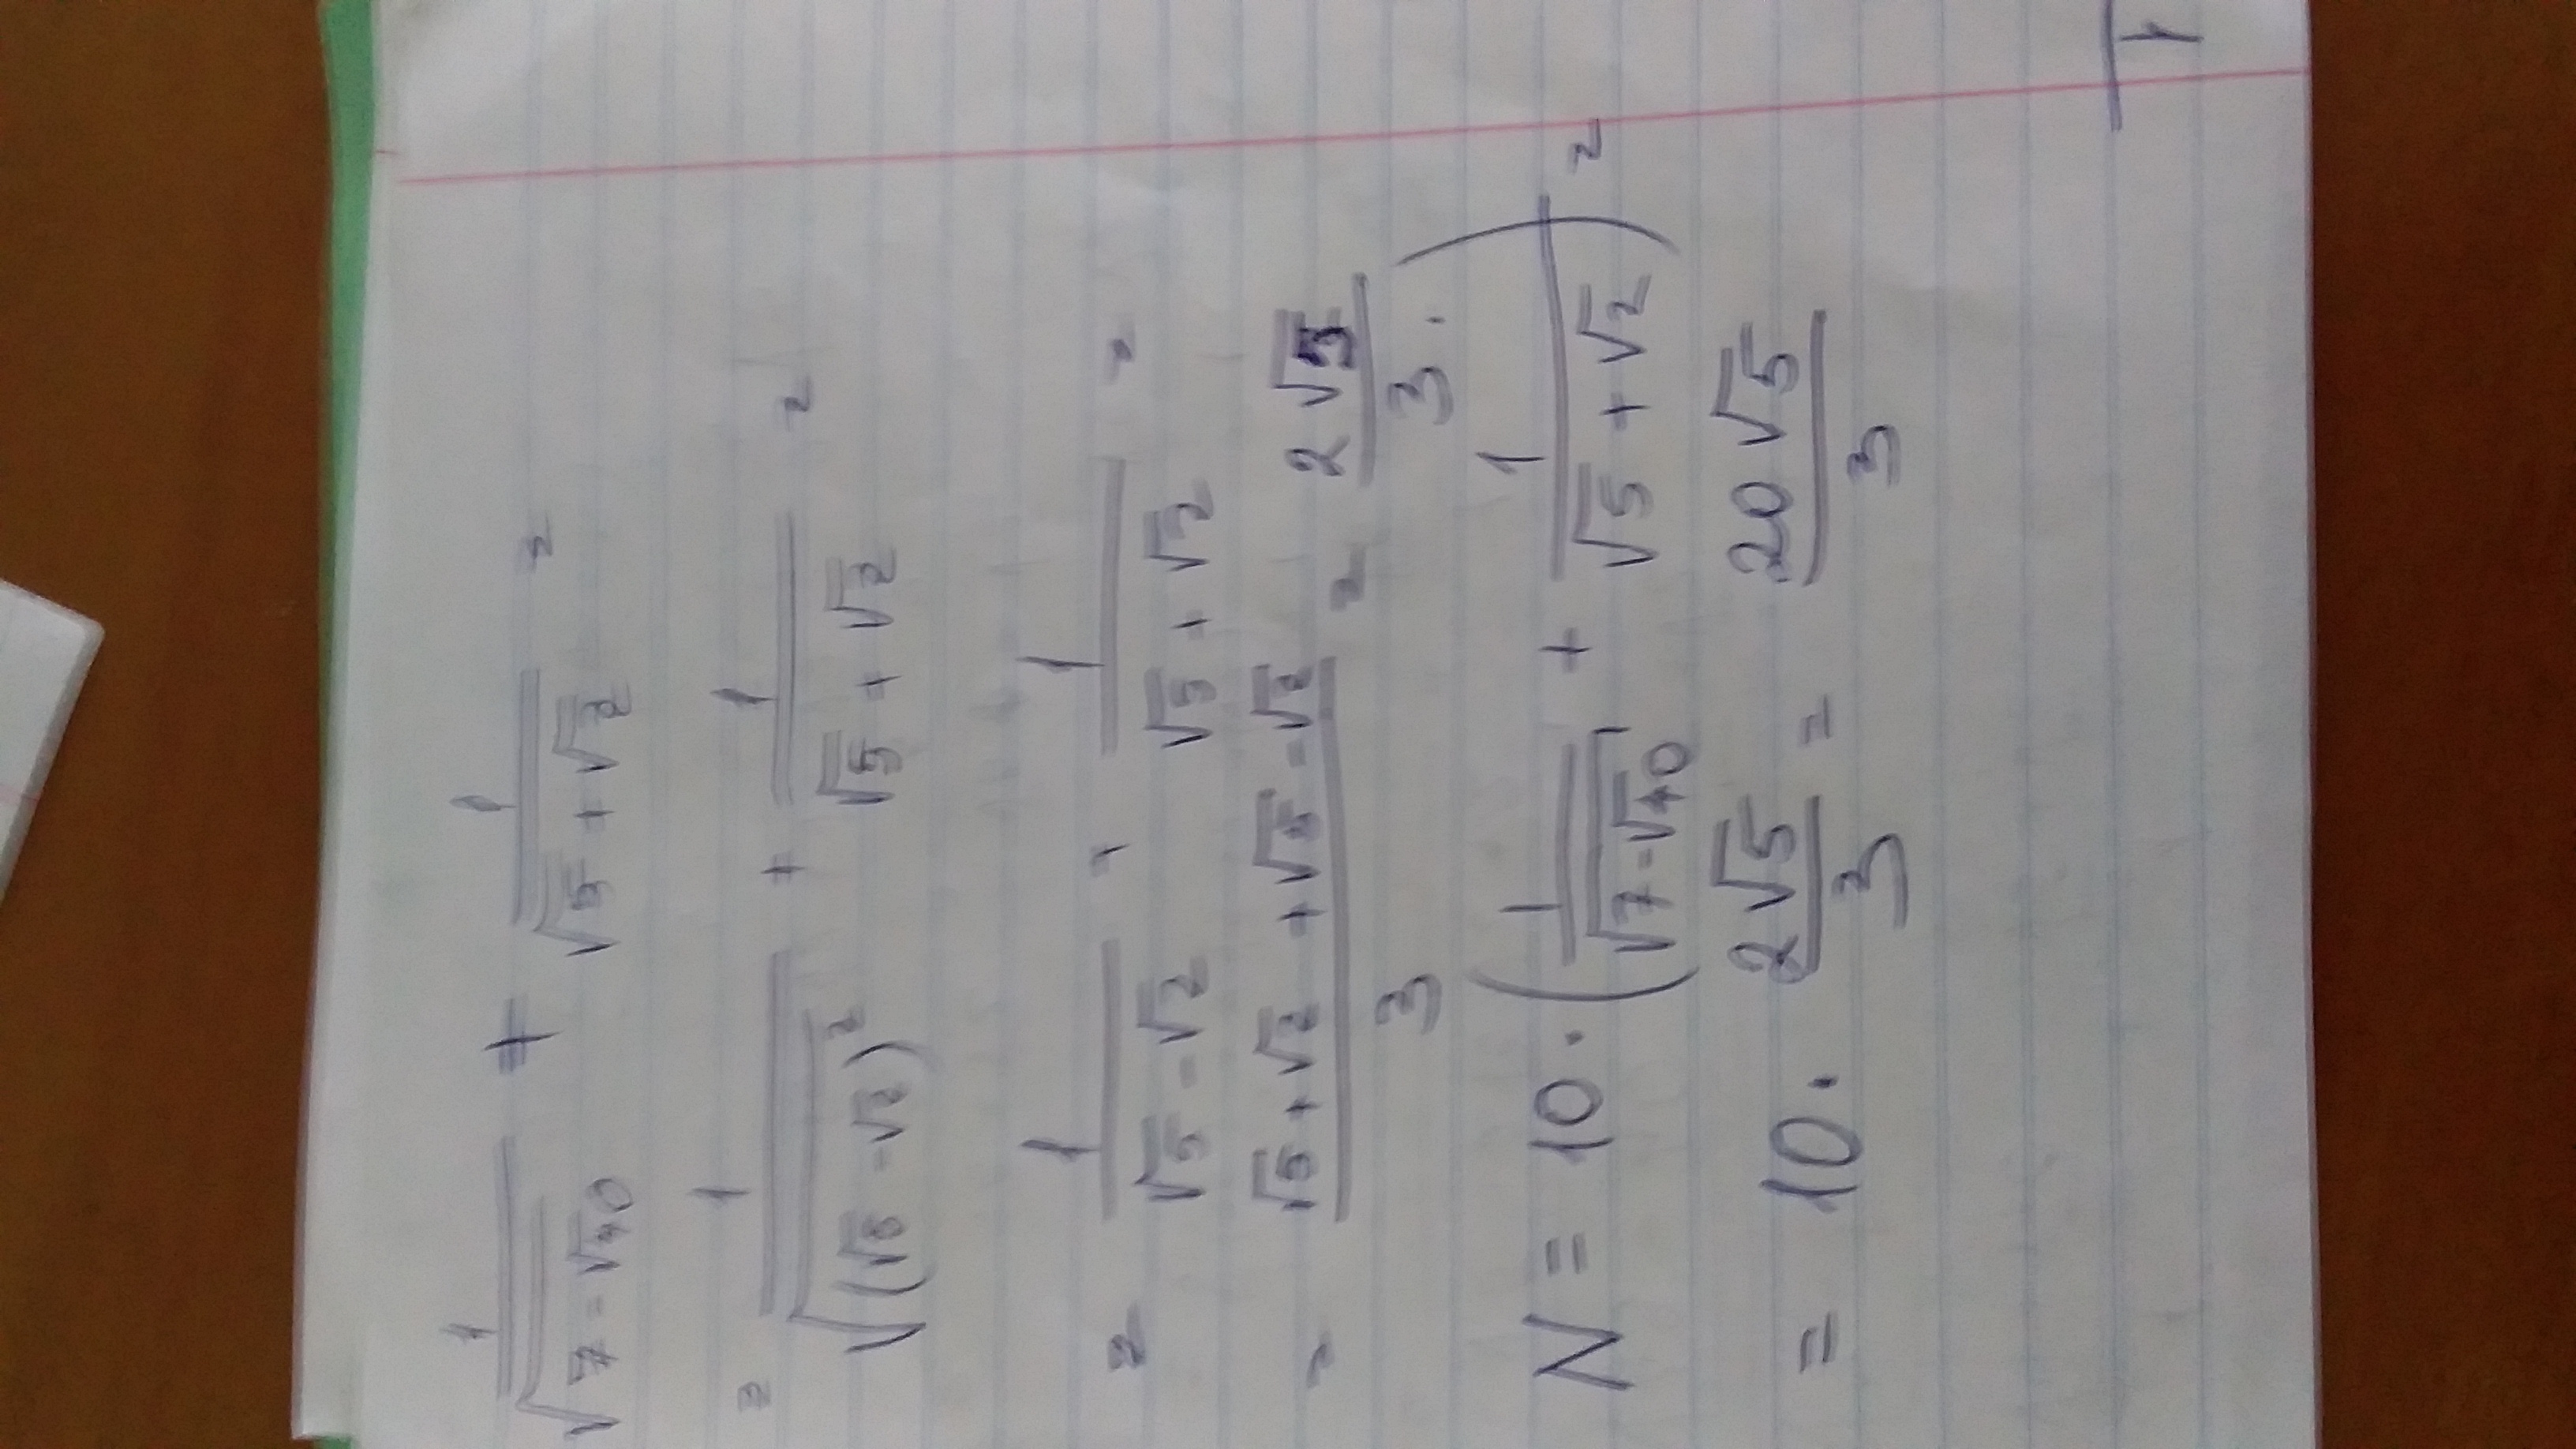 1/√(7-√40) + 1/(√5+√2) =
= 1/√((√5-√2)²) + 1/(√5+√2) =
= 1/(√5-√2) + 1/(√5+√2) =
= (√5+√2+√5-√2)/3 = 2√5/3.
N = 10·(1/√(7-√40) + 1/(√5+√2)) =
= 10· 2√5/3 = 20√5/3